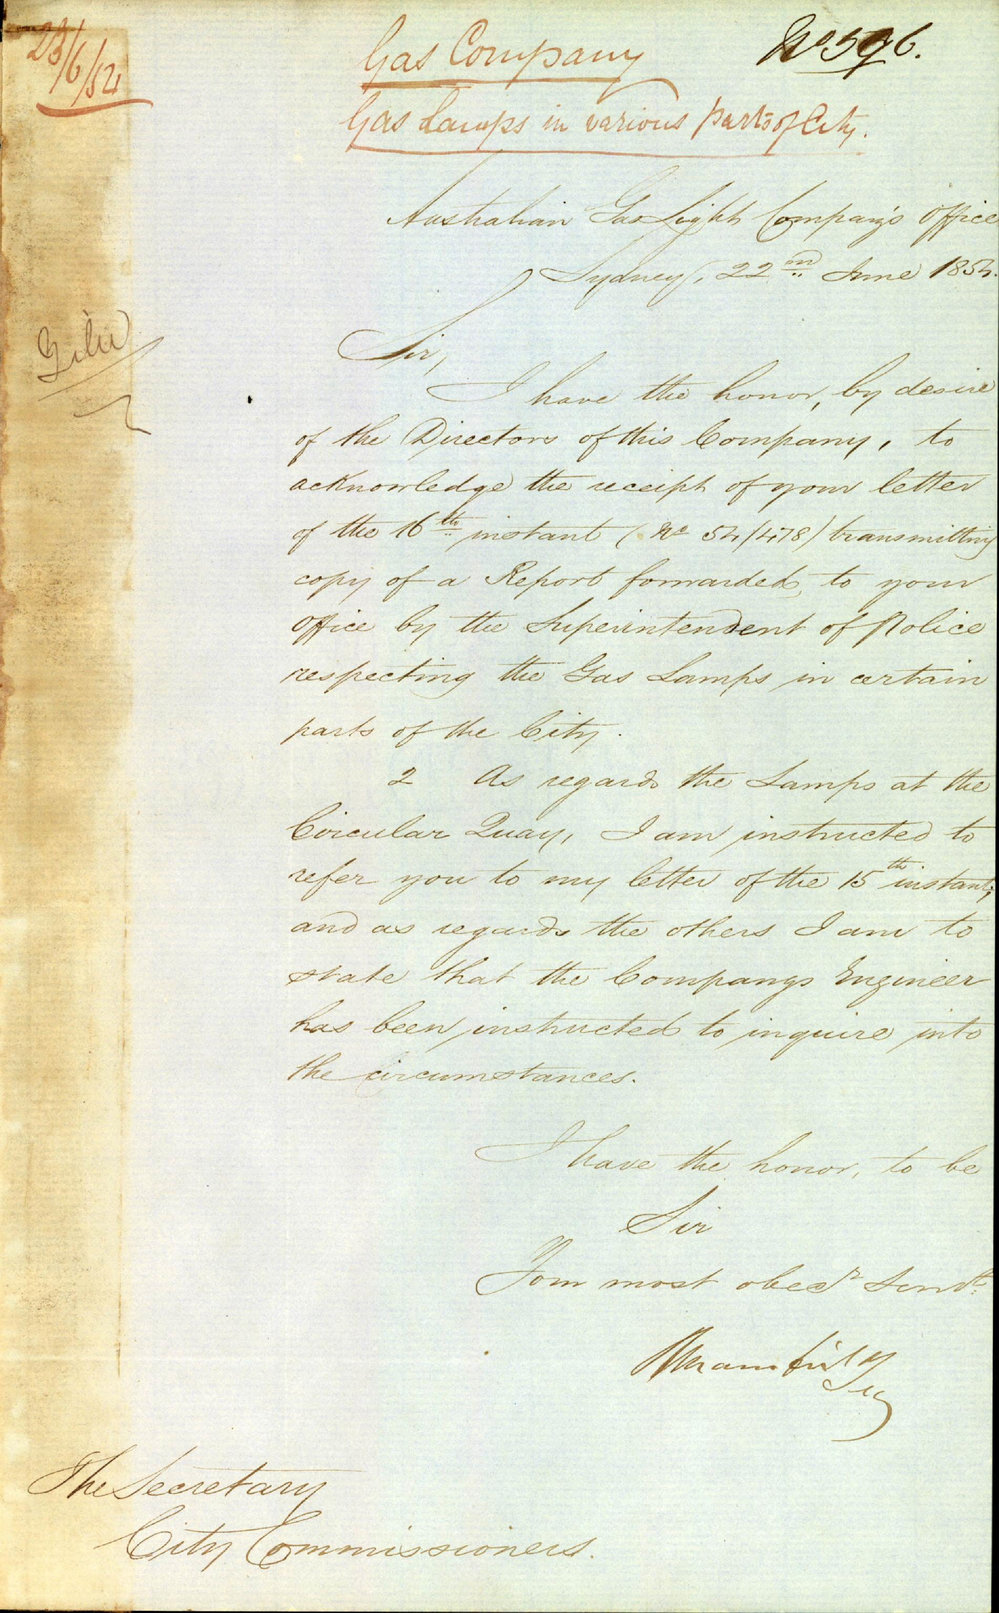 23/6/54
Gas Company
No 596.
Gas Lamps in various parts of City.
Australian Gas Light Company's Office
Sydney, 22nd June 1854.
Sir,
I have the honor, by desire
of the Directors of this Company, to
acknowledge the receipt of your letter
of the 16th instant (No 54/478) transmitting
copy of a Report forwarded to your
Office by the Superintendent of Police
respecting the Gas Lamps in certain
parts of the City.
2 As regards the Lamps at the
Circular Quay, I am instructed to
refer you to my letter of the 15th instant;
and as regards the others I am to
state that the Companys Engineer
has been instructed to inquire into
the circumstances.
I have the honor, to be
Sir
Your most obedt Servt.
Mansfield
Secy
The Secretary
City Commissioners.